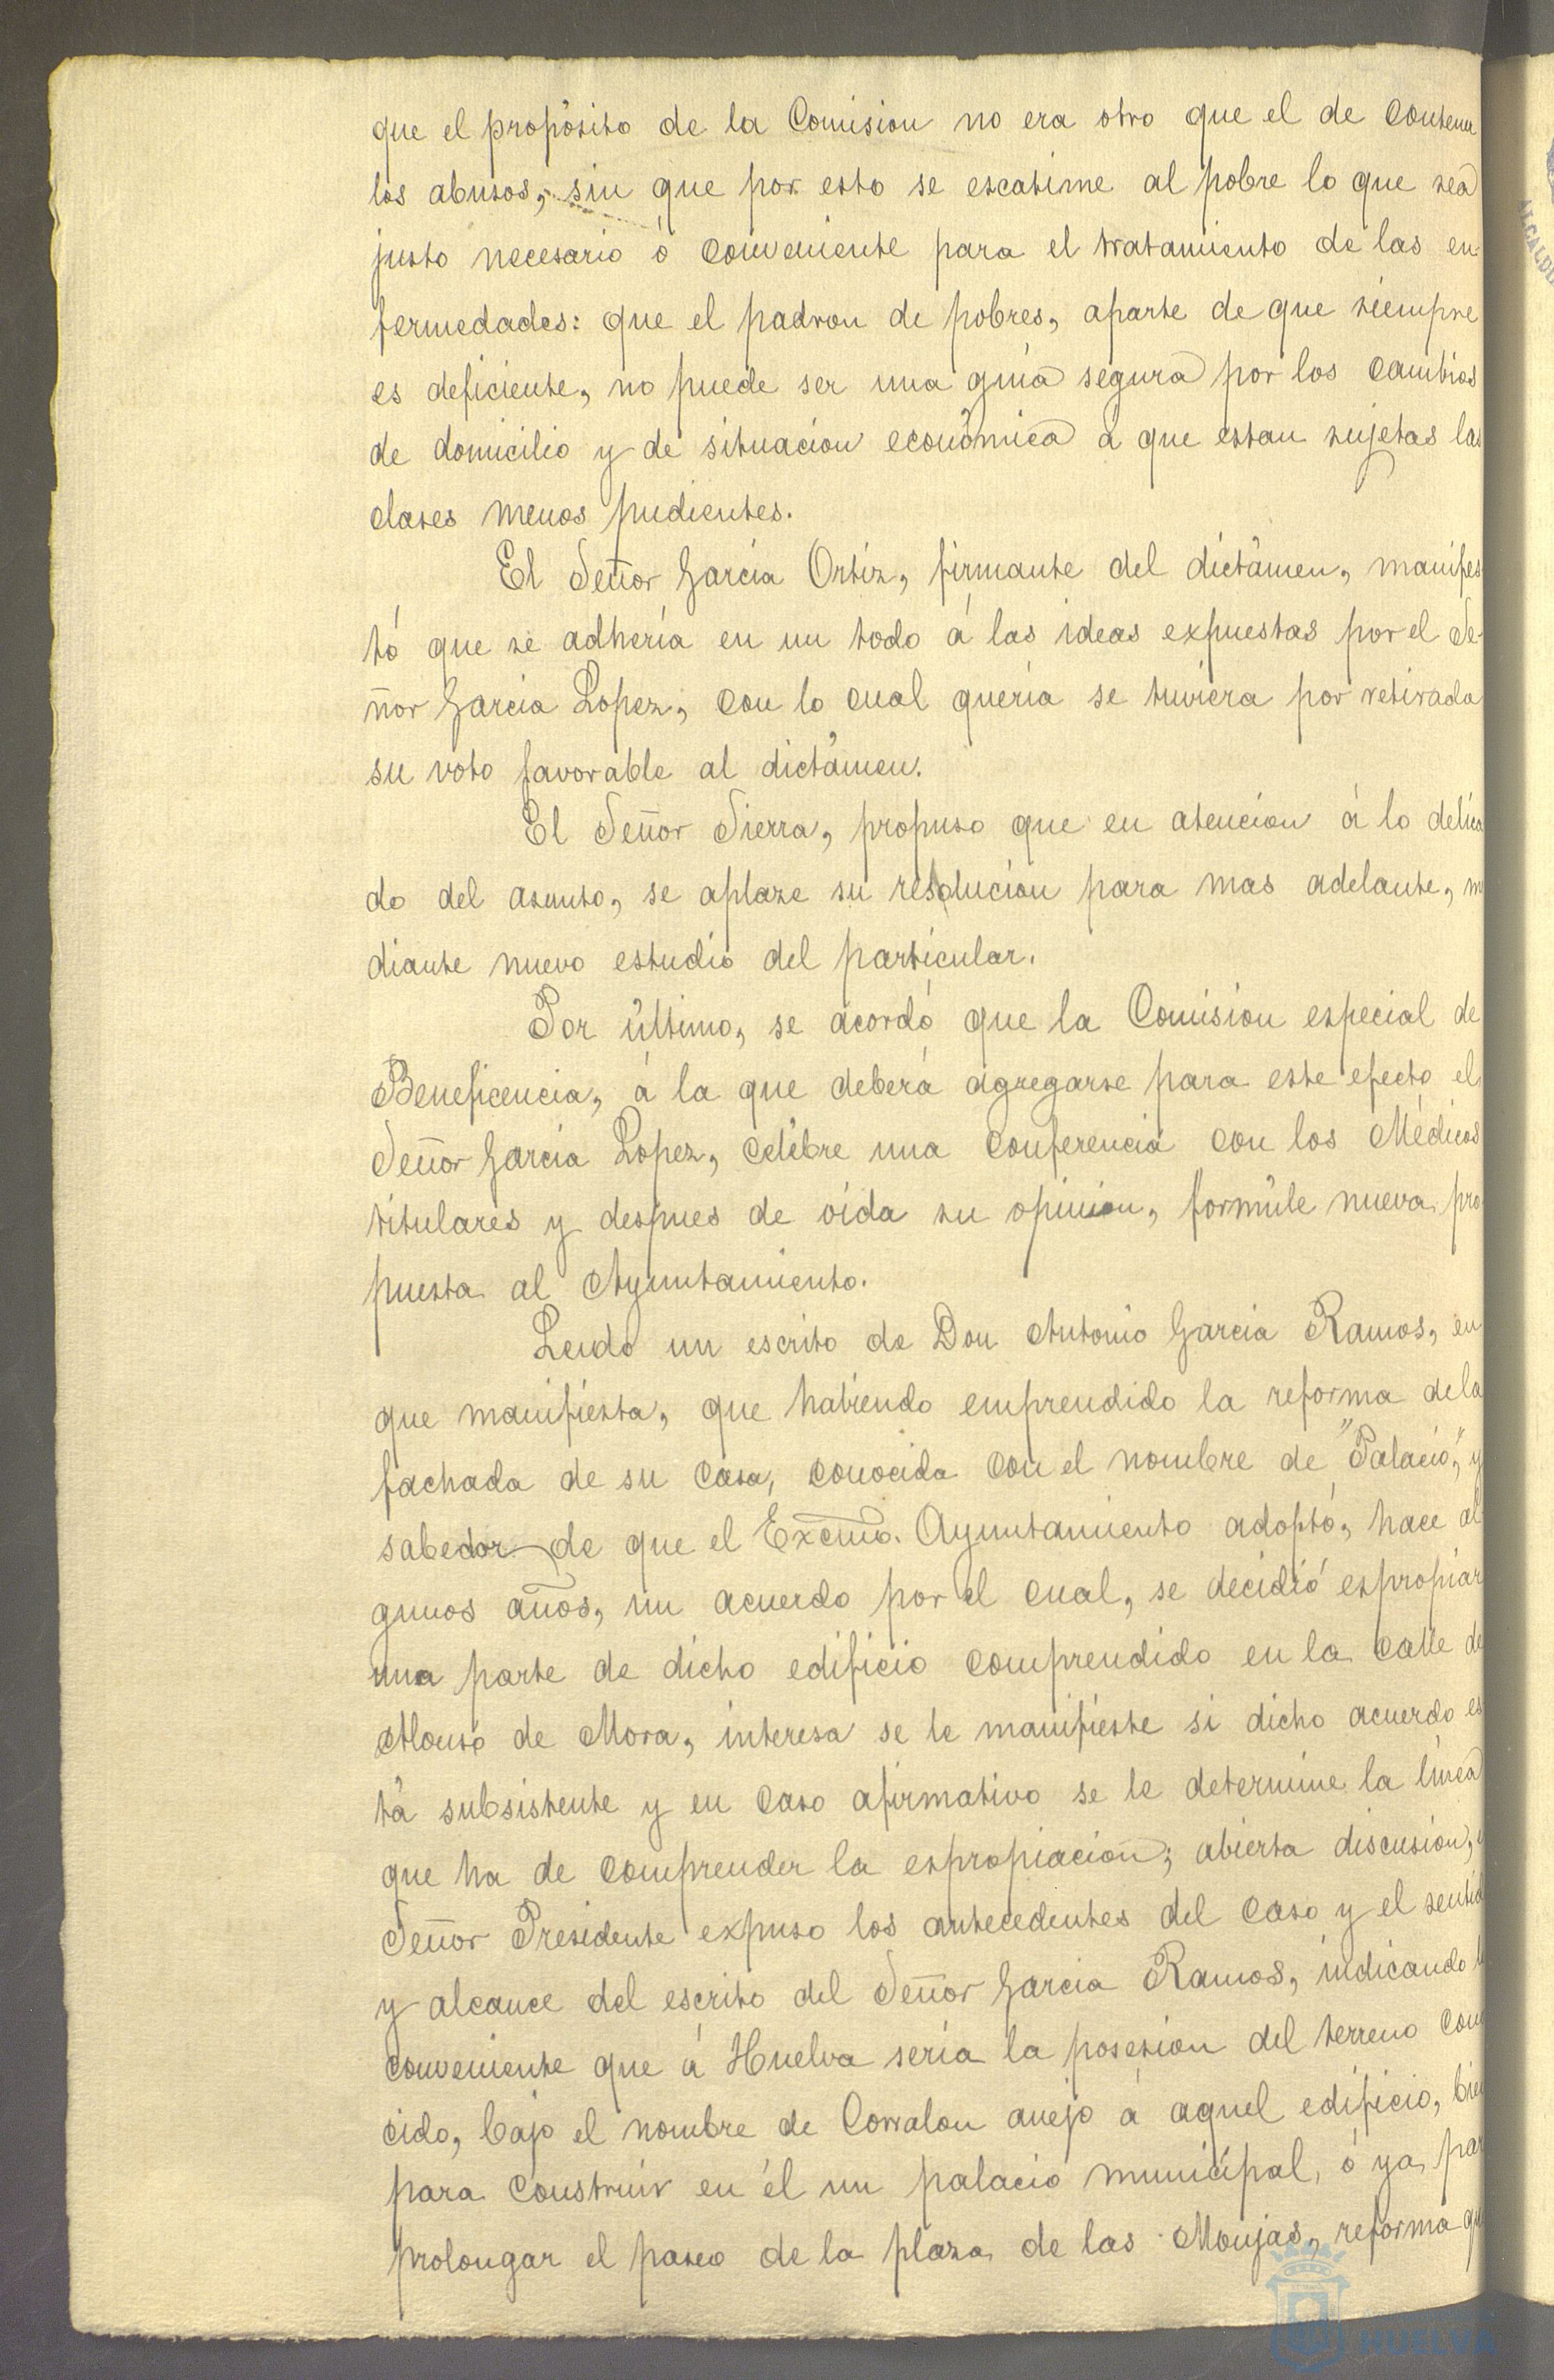 que el propósito de la Comision no era otro que el de contener
los abusos, sin que por esto se escatime al pobre lo que sea
justo necesario ó conveniente para el tratamiento de las en-
fermedades: que el padron de pobres, aparte de que siempre
es deficiente, no puede ser una guía segura por los cambios
de domicilio y de situacion económica á que estan sujetas las
clases menos pudientes.
El Señor García Ortiz, firmante del dictámen, manifes
tó que se adhería en un todo á las ideas expuestas por el Se-
ñor García Lopez, con lo cual quería se tuviera por retirada
su voto favorable al dictámen.
El Señor Sierra, propuso que en atencion á lo delica
do del asunto, se aplaze su resolucion para mas adelante, me
diante nuevo estudio del particular.
Por último, se acordó que la Comision especial de
Beneficencia, á la que deberá agregarse para este efecto el
Señor García Lopez, celébre una conferencia con los Médicos
titulares y despues de oida su opinion, formúle nueva pro
puesta al Ayuntamiento.
Leido un escrito de Don Antonio García Ramos, en
que manifiesta, que habiendo emprendido la reforma de la
fachada de su casa, conocida con el nombre de "Palacio," y
sabedor de que el Excmo. Ayuntamiento adoptó, hace al
gunos años, un acuerdo por el cual, se decidió espropiar
una parte de dicho edificio comprendido en la calle de
Alonso de Mora, interesa se le manifieste si dicho acuerdo es
tá subsistente y en caso afirmativo se le determine la línea
que ha de comprender la espropiación; abierta discusion,
Señor Presidente expuso los antecedentes del caso y el sentido
y alcance del escrito del Señor García Ramos, indicando lo
conveniente que á Huelva sería la posesion del terreno cono
cido, bajo el nombre de Corralon anejo á aquel edificio, bien
para construir en él un palacio municipal, ó ya para
prolongar el paseo de la plaza de las Monjas, reforma que
HUELVA